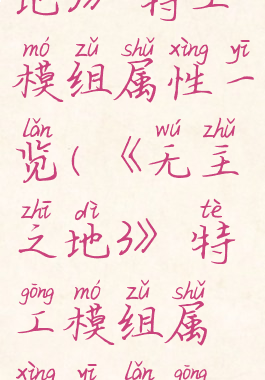 地3》特工
mó zǔ shǔ xìng yī
模组属性一
lǎn wú zhǔ
览(《无主
zhī dì tè
之地3》特
gōng mó zǔ shǔ
工模组属
xìng yī lǎn gōng